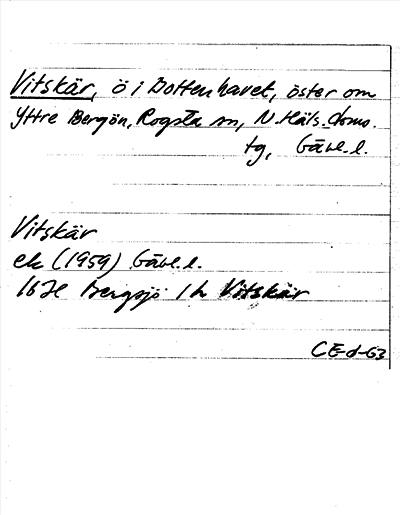 Vitskär, ö i Bottenhavet, öster om
Yttre Bergön, Rogsta sn, N. Häls. doms.
tg, Gävl. l.
Vitskär
ek (1959) Gävl. l.
16H Bergsjö 1h Vitskär
CE-d-63